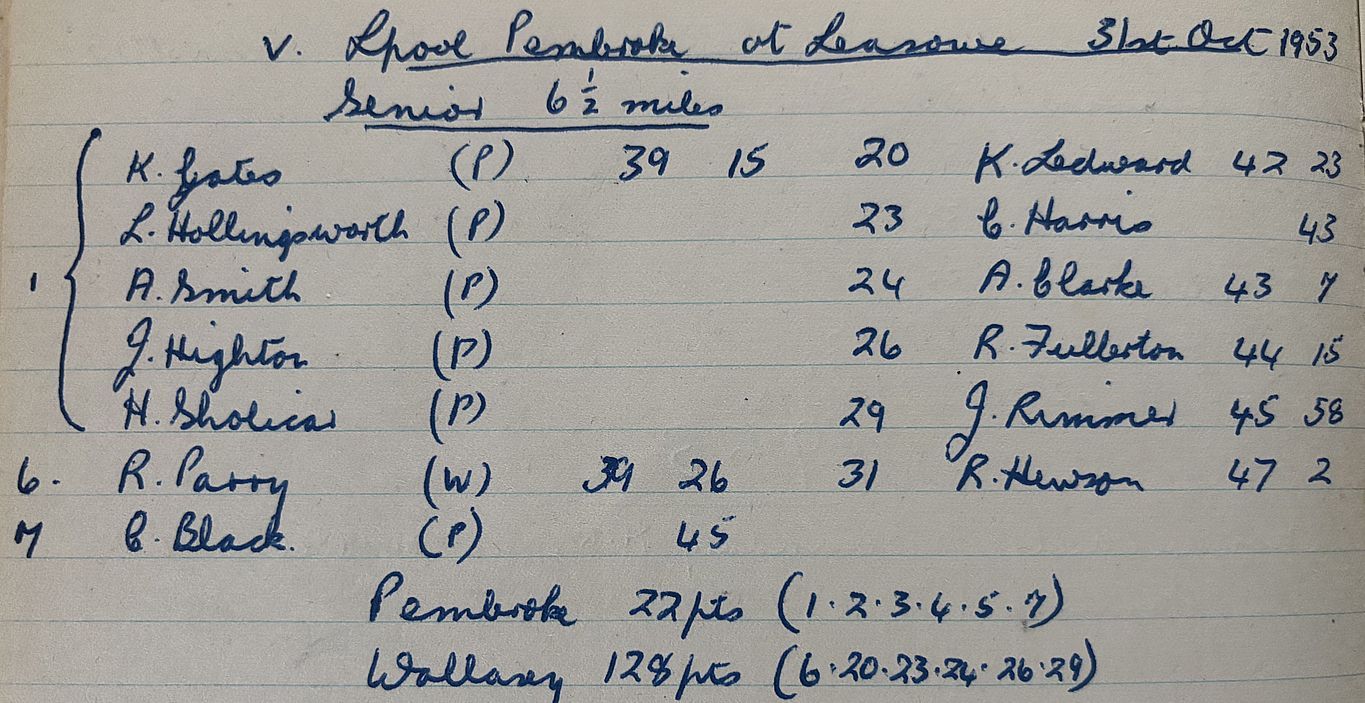 v. Lpool Pembroke at Leasowe 31st Oct 1953
Senior 6 ½ miles
K. Gates (P) 39 15 20 K. Ledward 42 23
L. Hollingsworth (P) 23 C. Harris 43
1 { A. Smith (P) 24 A. Clarke 43 7
J. Highton (P) 26 R. Fullerton 44 15
H. Sholicar (P) 29 J. Rimmer 45 58
6. R. Parry (W) 39 26 31 R. Hewson 47 2
7 C. Black. (P) 45
Pembroke 22 pts (1·2·3·4·5·7)
Wallasey 128 pts (6·20·23·24·26·29)